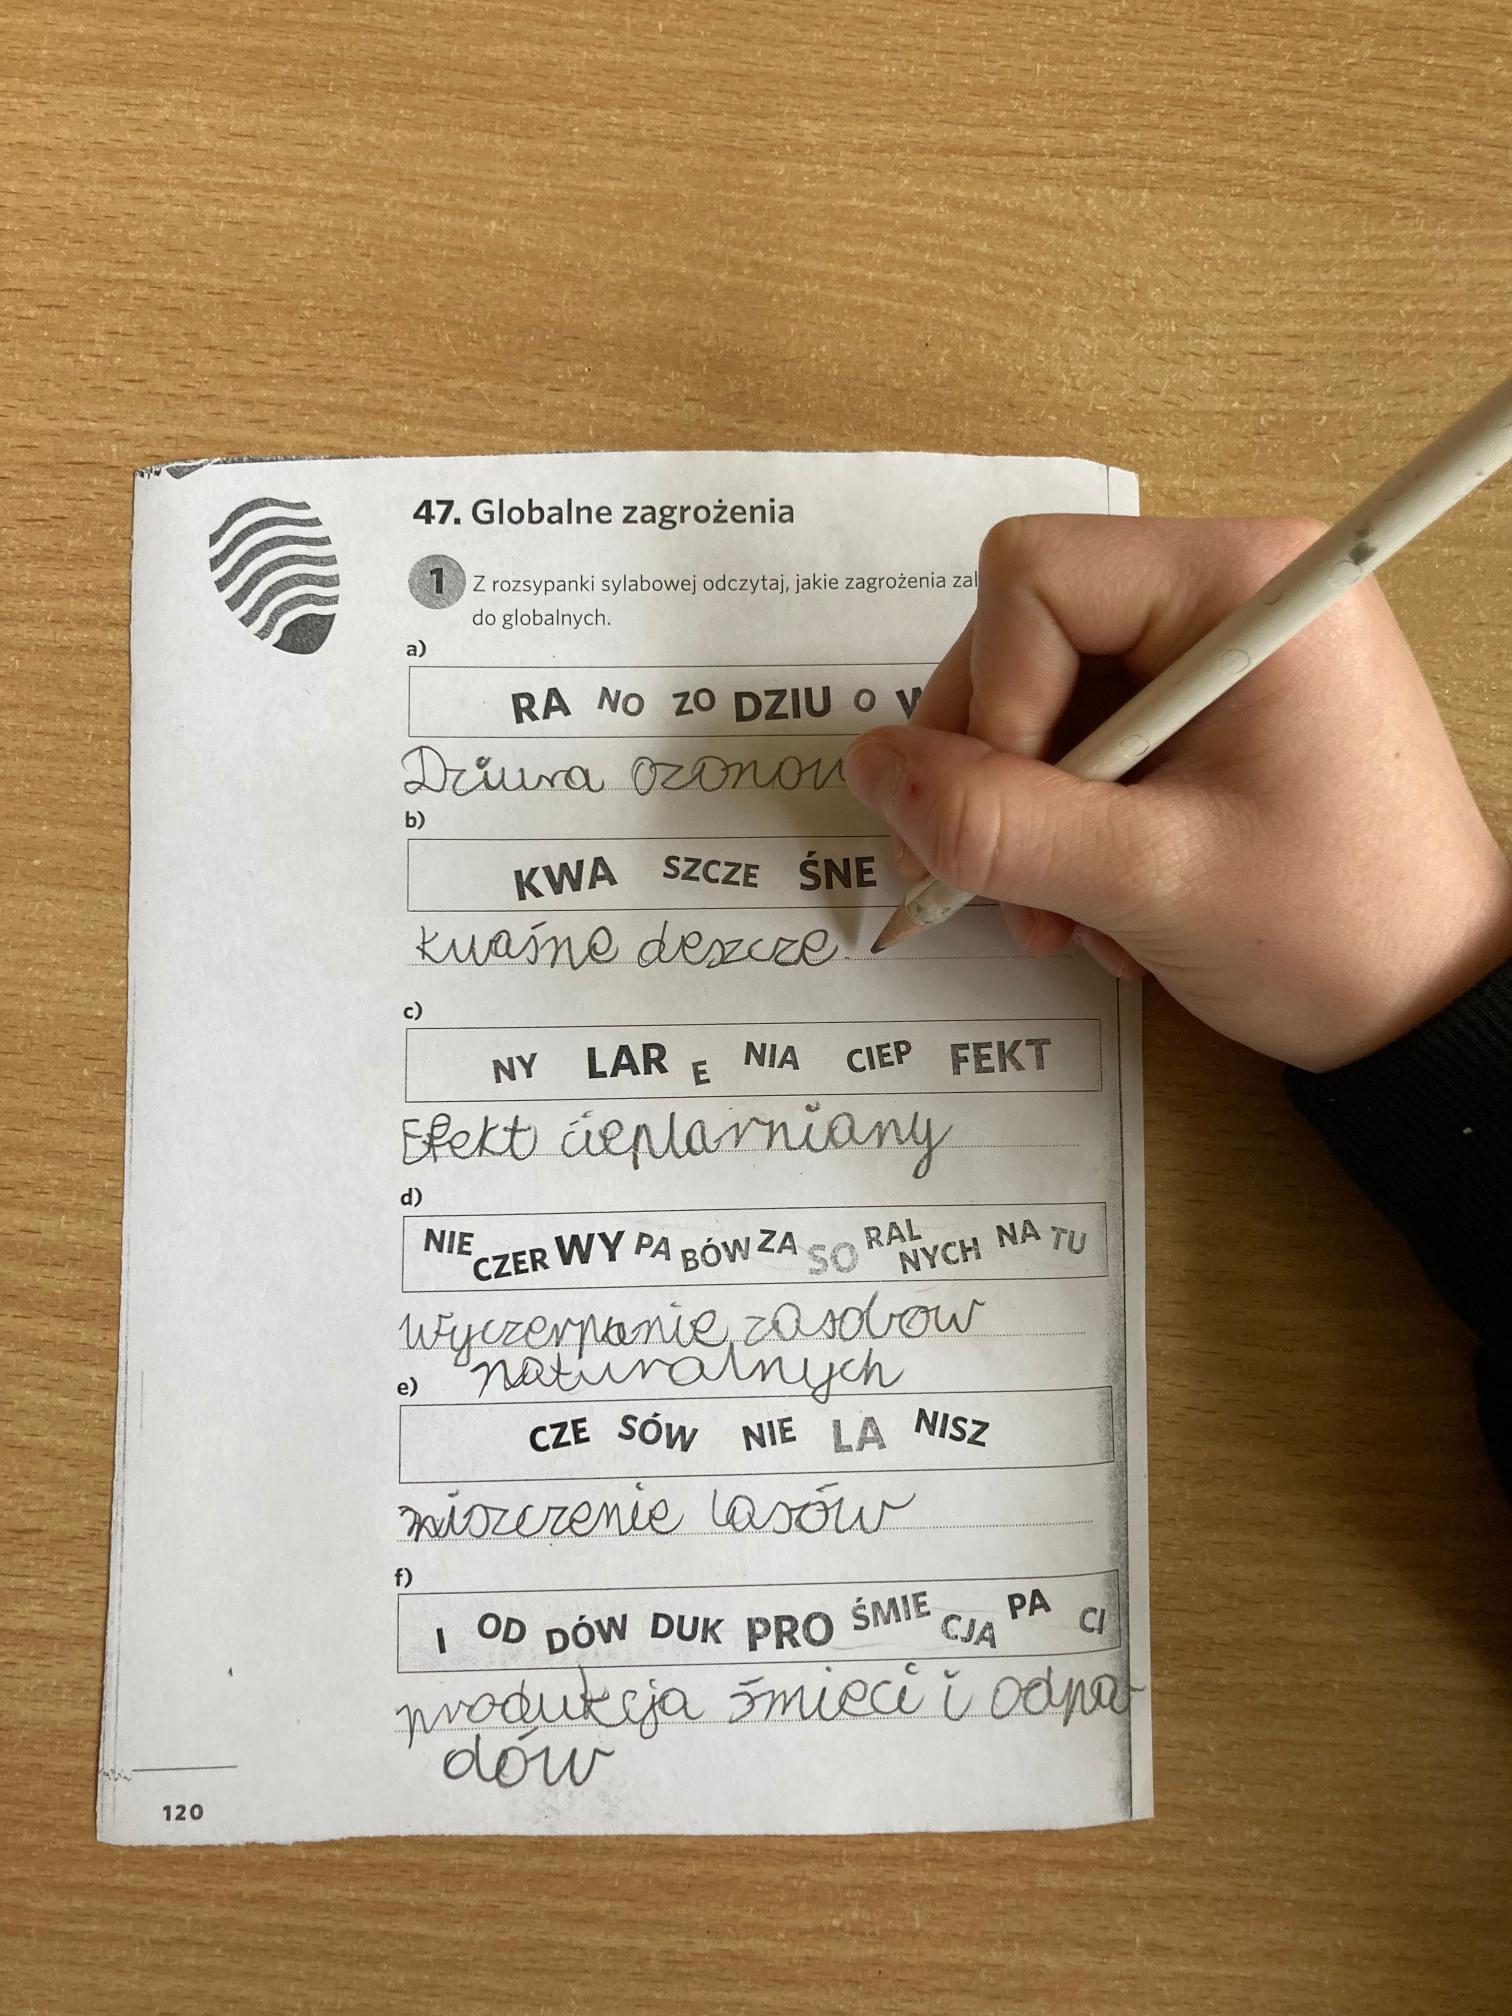 47. Globalne zagrożenia
1 Z rozsypanki sylabowej odczytaj, jakie zagrożenia
do globalnych.
a)
RA NO ZO DZIU O
Dziura
b)
KWA SZCZE ŚNE
Kwaśne deszcze.
c)
NY LAR E NIA CIEP FEKT
Efekt cieplarniany
d)
NIE CZER WY PA BÓW ZA SO RAL NYCH NA TU
Wyczerpanie zasobow
naturalnych
e)
CZE SÓW NIE LA NISZ
niszczenie lasów
f)
I OD DÓW DUK PRO ŚMIE CJA PA CI
produkcja śmieci i odpa-
dów
120